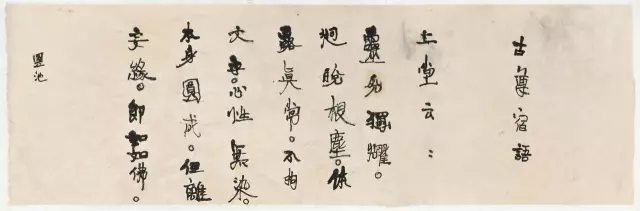 古尊宿語
上堂云：
靈光獨耀。
迥脫根塵。体
露眞常。不拘
文字。心性無染。
本自圓成。但離
妄緣。即如如佛。
池